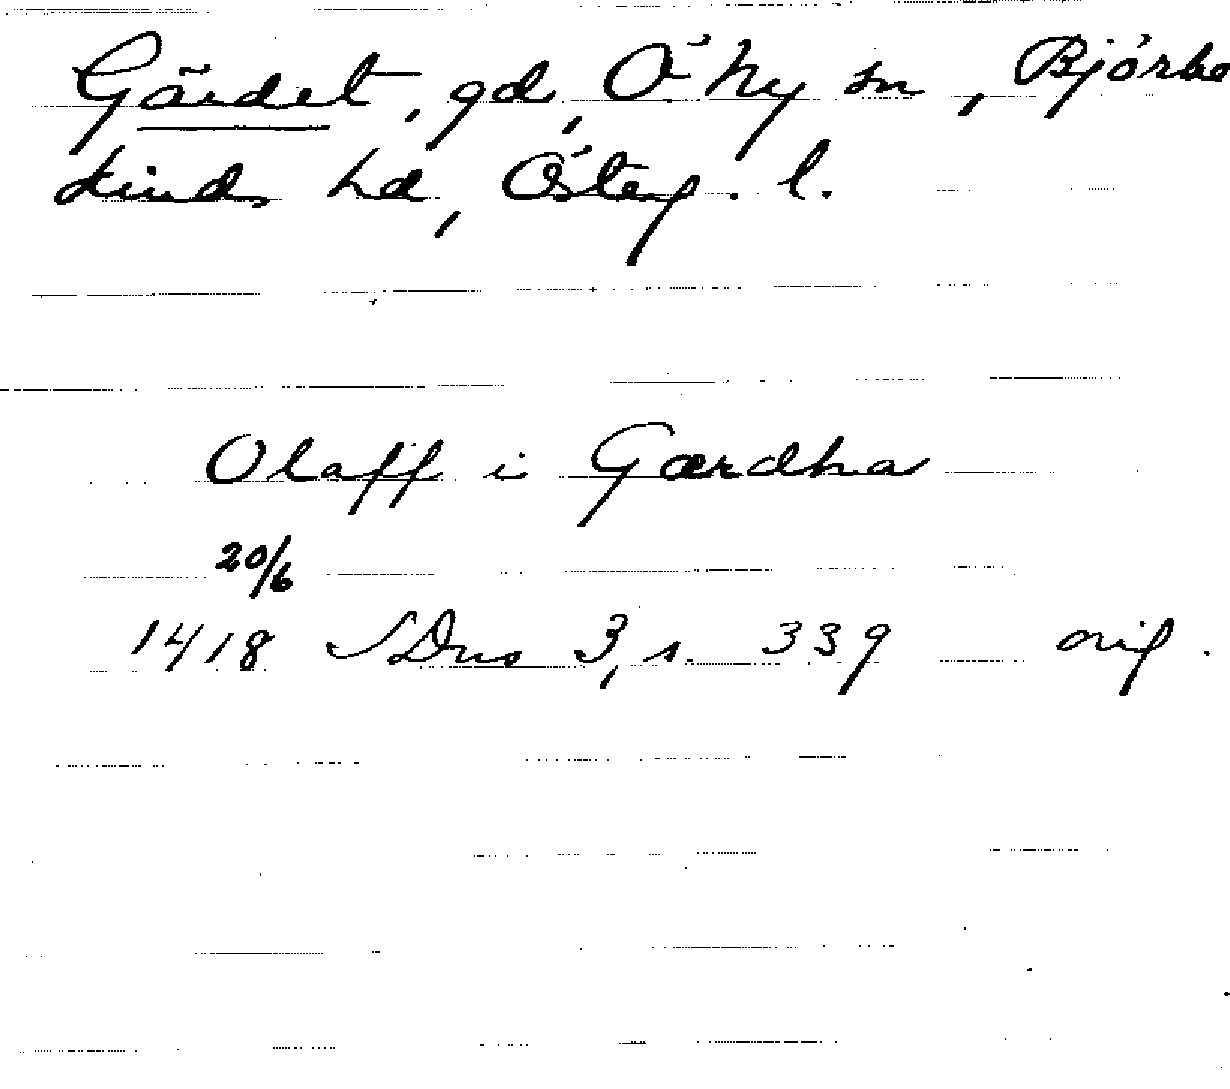 Gärdet, gd, Ö Ny sn, Björke
kinds hd, Österg. l.
Olaff i Gærdha
20/6
1418 SDns 3, s. 339 orig.